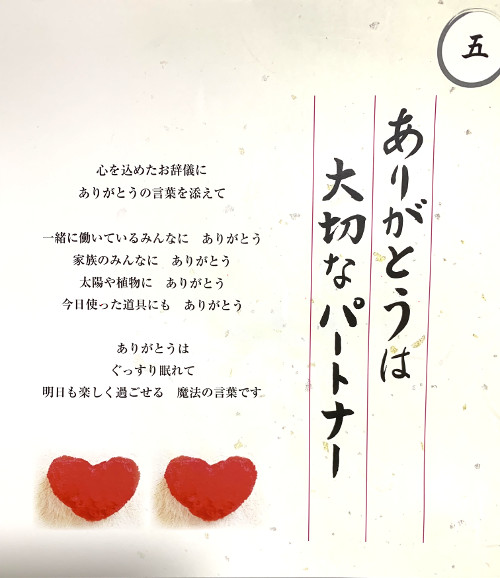 五
ありがとうは
大切なパートナー
心を込めたお辞儀に
ありがとうの言葉を添えて
一緒に働いているみんなに　ありがとう
家族のみんなに　ありがとう
太陽や植物に　ありがとう
今日使った道具にも　ありがとう
ありがとうは
ぐっすり眠れて
明日も楽しく過ごせる　魔法の言葉です